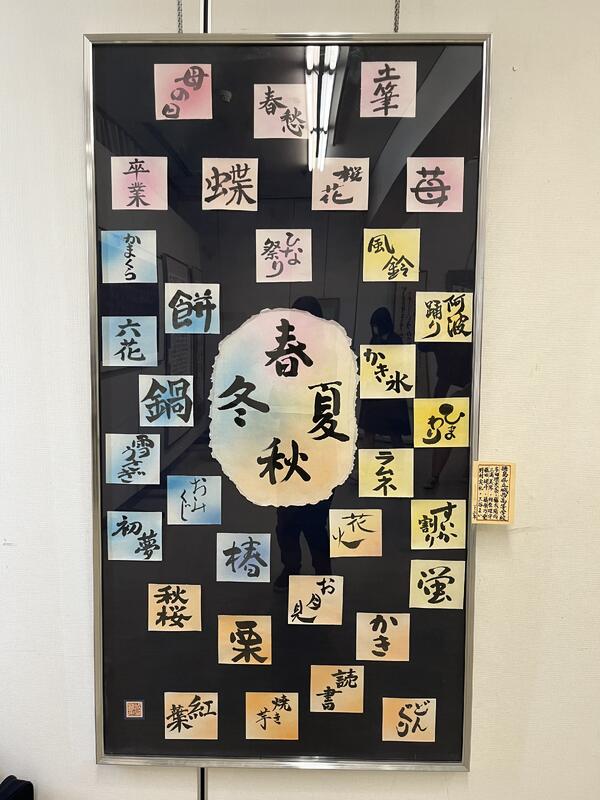 母の日
春愁
土筆
卒業
蝶
桜花
苺
かまくら
ひな祭り
風鈴
餅
阿波踊り
六花
春
夏
秋
冬
かき氷
鍋
ひまわり
雪うさぎ
ラムネ
おみくじ
すいか割り
初夢
椿
花火
蛍
秋桜
お月見
栗
かき
読書
紅葉
焼き芋
どんぐり